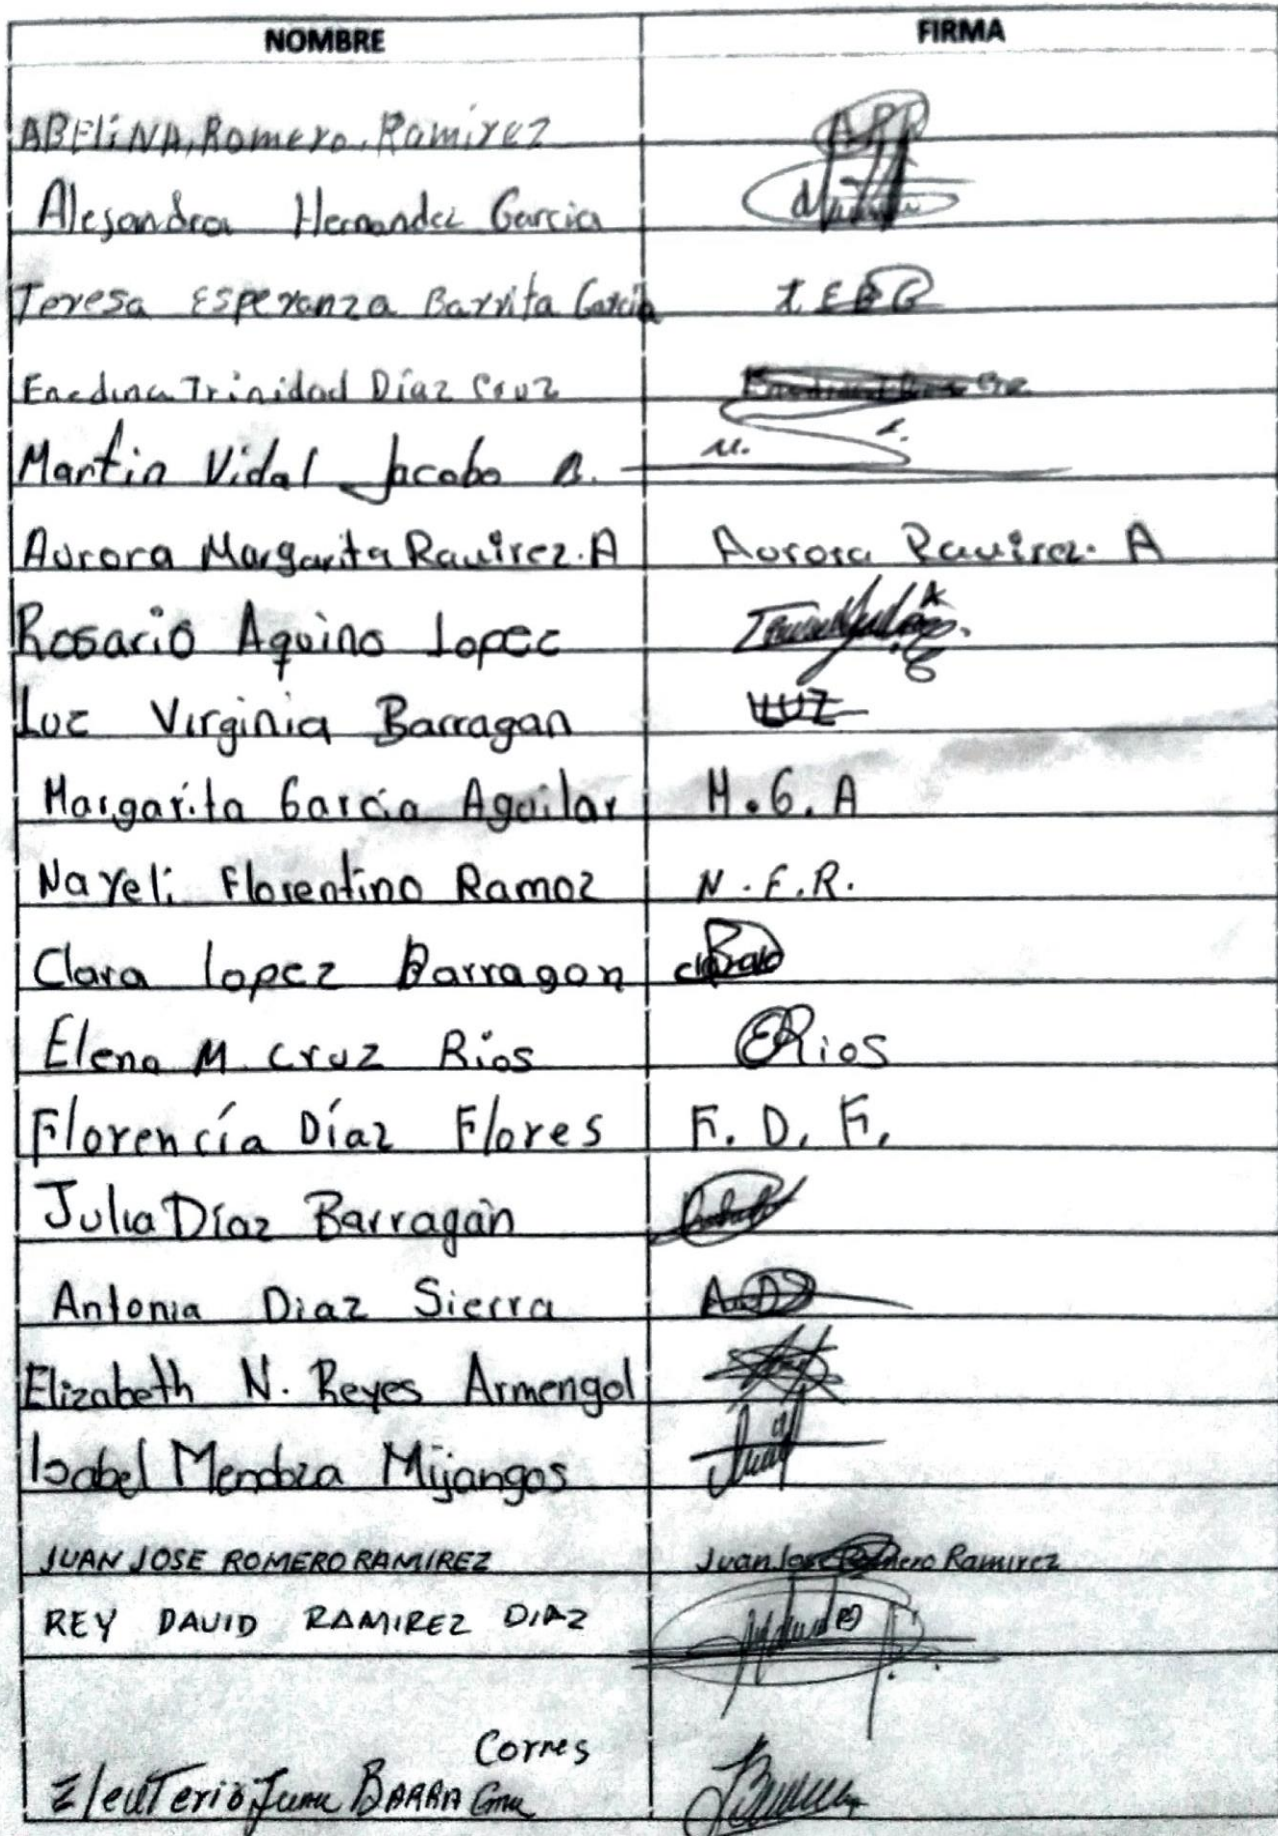 NOMBRE FIRMA
ABELINA, Romero, Ramirez ARR
Alejandra Hernandez Garcia
Teresa Esperanza Barrita Garcia T E B G
Enedina Trinidad Díaz Cruz
Martin Vidal Jacobo B. M.
Aurora Margarita Ramirez.A Aurora Ramirez. A
Rosario Aquino Lopez
Luz Virginia Barragan LUZ
Margarita Garcia Aguilar M.G.A
Nayeli Florentino Ramoz N.F.R.
Clara lopez Barragan
Elena M. Cruz Rios ERios
Florencía Díaz Flores F. D. F.
Julia Díaz Barragàn
Antonia Diaz Sierra
Elizabeth N. Reyes Armengol
Isabel Mendoza Mijangos
JUAN JOSE ROMERO RAMIREZ Juan Jose Romero Ramirez
REY DAVID RAMIREZ DIAZ
Cornes
EleuTerio Juan BARRAGan